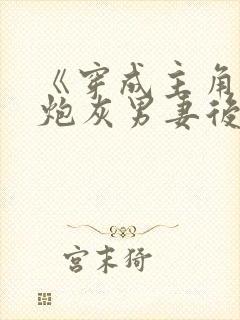 《穿成主角
炮灰男妻後
宫末猗